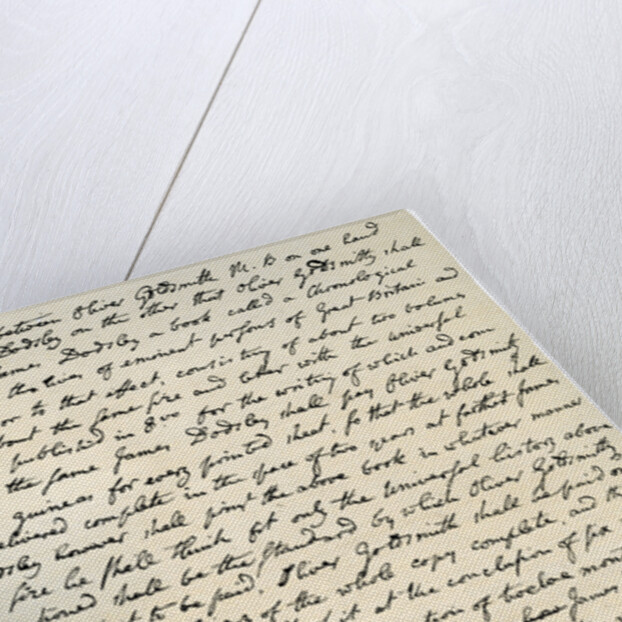 between Oliver Goldsmith M. B on one hand
Dodsley on the other that Oliver Goldsmith shall
James Dodsley a book called a Chronological
the lives of eminent persons of Great Britain and
or to that effect, consisting of about two volumes
about the same size and letter with the universal
published in 8vo for the writing of which and com
the same James Dodsley shall pay Oliver Goldsmith
guineas for every printed sheet, so that the whole shall
delivered complete in the space of two years at farthest James
Dodsley however shall print the above book in whatever manner
size he shall think fit only the Universal history above
tioned shall be the Standard by which Oliver Goldsmith
to be paid. Oliver Goldsmith shall be paid
of the whole copy complete, and th
it at the conclusion of six
tion of twelve mont
James